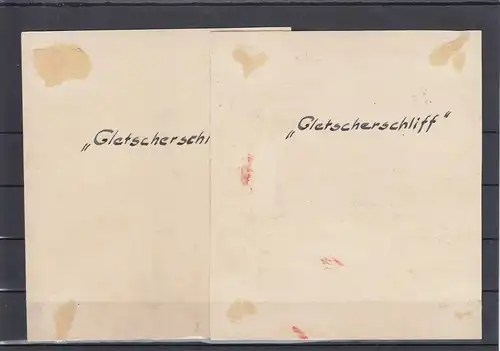 „Gletscherschl
„Gletscherschliff"